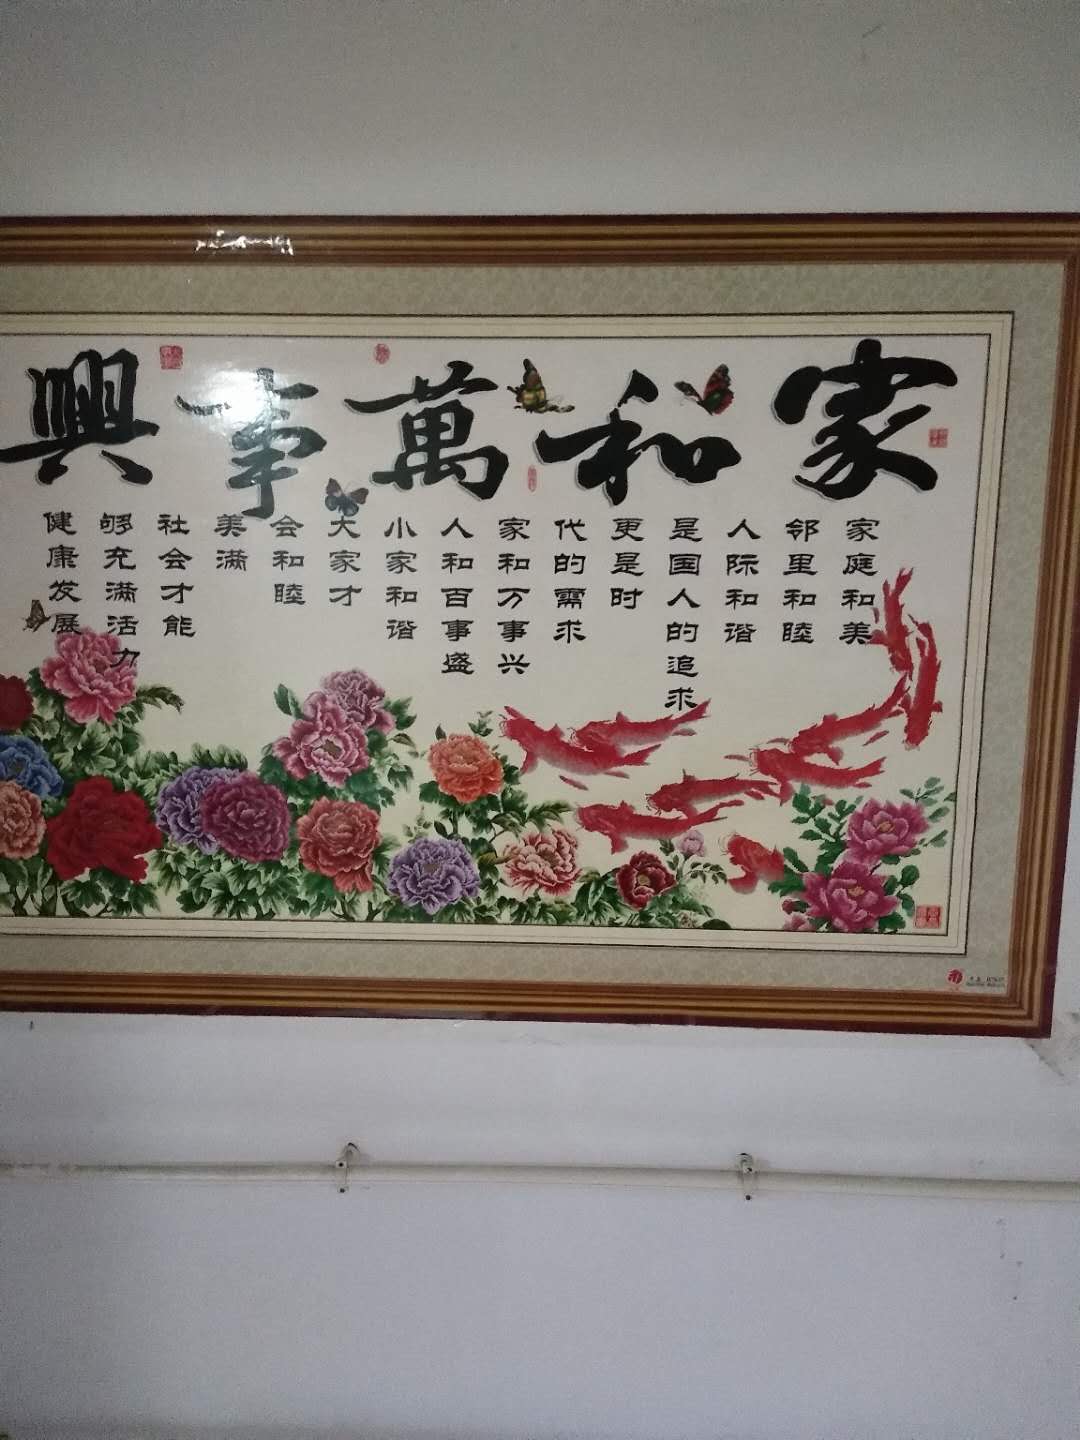 家和萬事興
家庭和美
邻里和睦
人际和谐
是国人的追求
更是时
代的需求
家和万事兴
人和百事盛
小家和谐
大家才
会和睦
美满
社会才能
够充满活力
健康发展